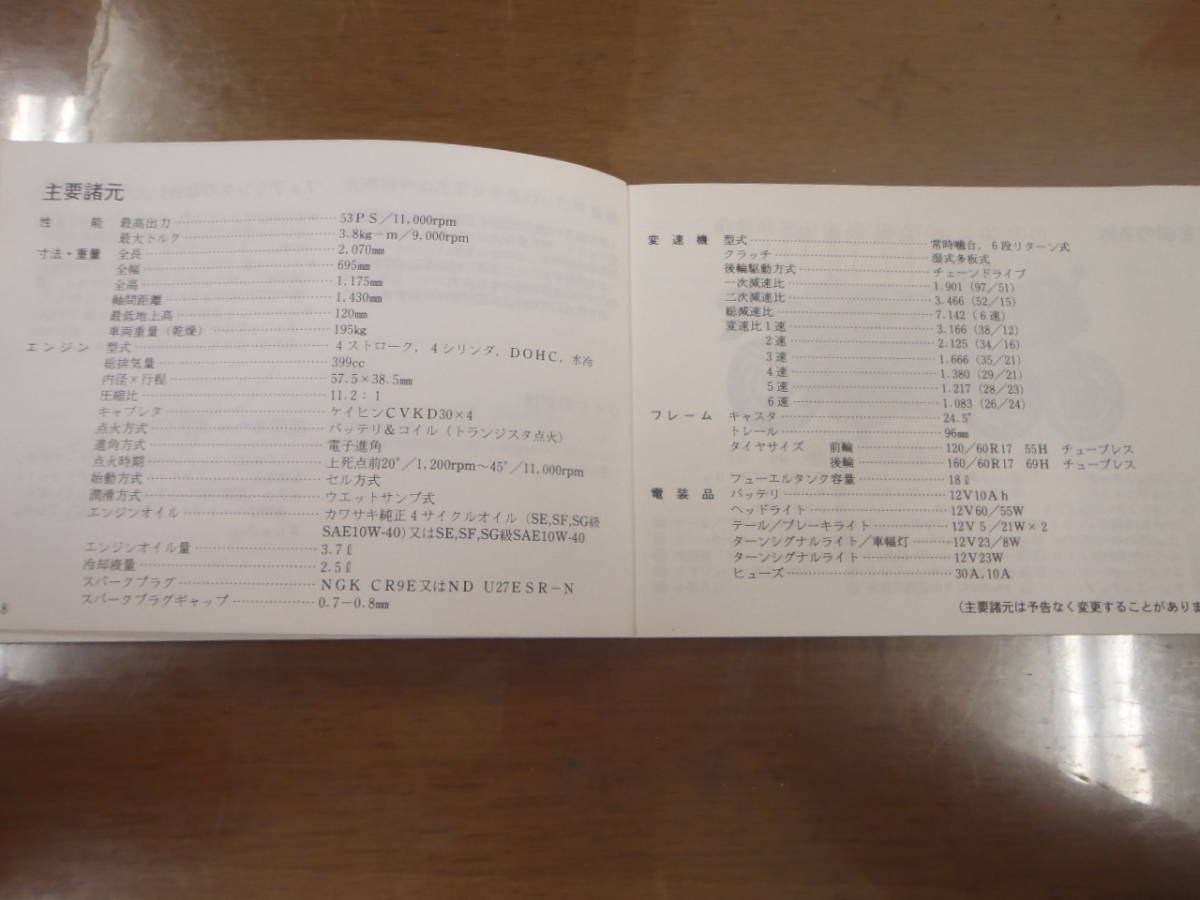 主要諸元
性能 最高出力 53PS／11,000rpm
最大トルク 3.8kg－m／9,000rpm
寸法・重量 全長 2,070㎜
全幅 695㎜
全高 1,175㎜
軸間距離 1,430㎜
最低地上高 120㎜
車両重量（乾燥） 195kg
エンジン 型式 4ストローク，4シリンダ，DOHC，水冷
総排気量 399cc
内径×行程 57.5×38.5㎜
圧縮比 11.2：1
キャブレタ ケイヒンCVKD30×4
点火方式 バッテリ＆コイル（トランジスタ点火）
進角方式 電子進角
点火時期 上死点前20°／1,200rpm～45°／11,000rpm
始動方式 セル方式
潤滑方式 ウエットサンプ式
エンジンオイル カワサキ純正4サイクルオイル（SE,SF,SG級
SAE10W-40）又はSE,SF,SG級SAE10W-40
エンジンオイル量 3.7ℓ
冷却液量 2.5ℓ
スパークプラグ NGK CR9E又はND U27ESR－N
スパークプラグギャップ 0.7－0.8㎜
8
変速機 型式 常時噛合，6段リターン式
クラッチ 湿式多板式
後輪駆動方式 チェーンドライブ
一次減速比 1.901（97/51）
二次減速比 3.466（52/15）
総減速比 7.142（6速）
変速比1速 3.166（38/12）
2速 2.125（34/16）
3速 1.666（35/21）
4速 1.380（29/21）
5速 1.217（28/23）
6速 1.083（26/24）
フレーム キャスタ 24.5°
トレール 96㎜
タイヤサイズ 前輪 120/60R17 55H チューブレス
後輪 160/60R17 69H チューブレス
フューエルタンク容量 18ℓ
電装品 バッテリ 12V10Ah
ヘッドライト 12V60/55W
テール／ブレーキライト 12V5/21W×2
ターンシグナルライト／車幅灯 12V23/8W
ターンシグナルライト 12V23W
ヒューズ 30A,10A
（主要諸元は予告なく変更することがありま